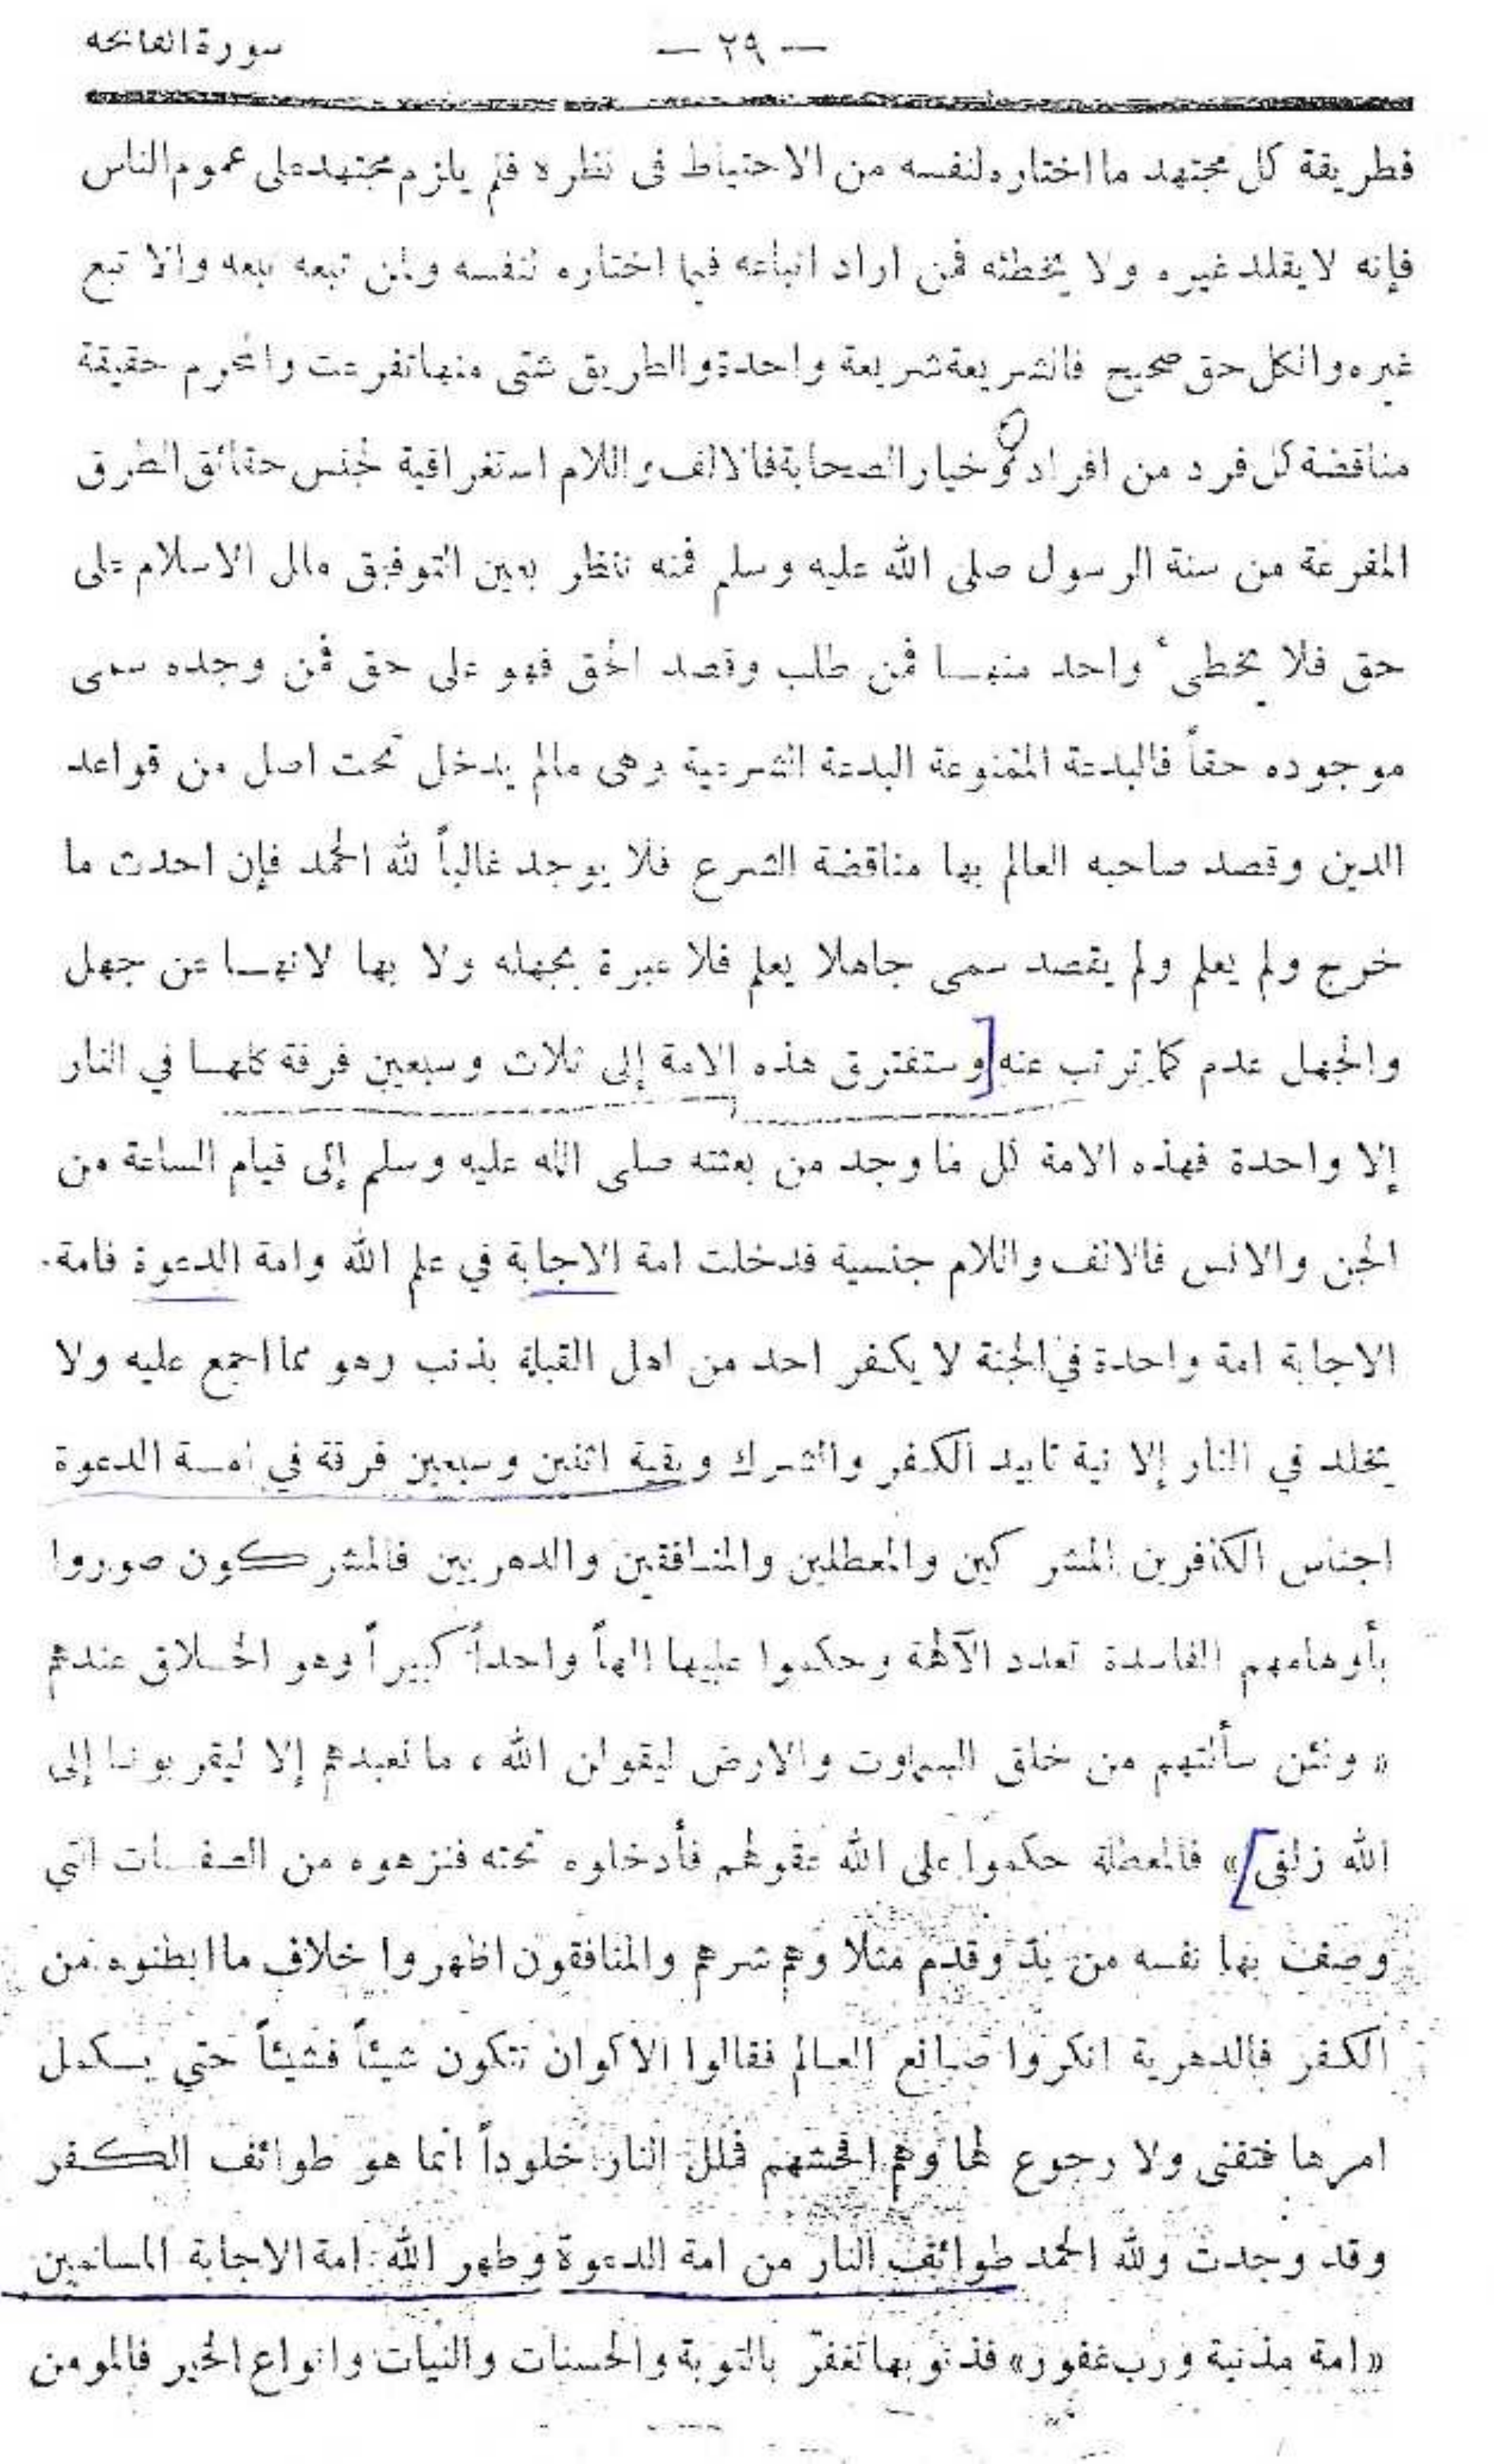 سورة الفاتحه
— ٢٩ —
فطريقة كل مجتهد ما اختاره لنفسه من الاحتياط فى نظره فلم يلزم مجتهد على عموم الناس
فإنه لا يقلد غيره ولا يخطئه فمن اراد اتباعه فيما اختاره لنفسه ولمن تبعه تبعه والا تبع
غيره والكل حق صحيح فالشريعة شريعة واحدة والطريق شتى منها تفرعت والمحرم حقيقة
مناقضة كل فرد من افراد خيار الصحابة فالالف واللام استغراقية لجنس حقائق الطرق
المفرعة من سنة الرسول صلى الله عليه وسلم فمنه ننظر بعين التوفيق ملل الاسلام على
حق فلا يخطىء واحد منهـا فمن طلب وقصد الحق فهو على حق فمن وجده سمى
موجوده حقاً فالبدعة الممنوعة البدعة الشرعية وهى مالم يدخل تحت اصل من قواعد
الدين وقصد صاحبه العالم بها مناقضة الشرع فلا يوجد غالباً لله الحمد فإن احدث ما
خرج ولم يعلم ولم يقصد سمى جاهلا يعلم فلا عبرة بجهله ولا بها لانهـا عن جهل
والجهل عدم كما ترتب عنه [وستفترق هذه الامة إلى ثلاث وسبعين فرقة كلهـا في النار
إلا واحدة فهذه الامة كل ما وجد من بعثته صلى الله عليه وسلم إلى قيام الساعة من
الجن والانس فالالف واللام جنسية فدخلت امة الاجابة في علم الله وامة الدعوة فامة
الاجابة امة واحدة في الجنة لا يكفر احد من اهل القبلة بذنب وهو مما اجمع عليه ولا
يخلد في النار إلا نية تابيد الكفر والشرك وبقية اثنين وسبعين فرقة في امـة الدعوة
اجناس الكافرين المشركين والمعطلين والمنـافقين والدهريين فالمشركون صوروا
بأوهامهم الفاسدة تعدد الآلهة وحكموا عليها الهاً واحداً كبيراً وهو الخـلاق عندهم
« ولئن سألتهم من خلق السماوت والارض ليقولن الله ، ما نعبدهم إلا ليقربونـا إلى
الله زلفى]» فالمعطلة حكموا على الله عقولهم فأدخلوه تحته فنزهوه من الصفـات التي
وصف بها نفسه من يد وقدم مثلا وهم شرهم والمنافقون اظهروا خلاف ما ابطنوه من
الكفر فالدهرية انكروا صـانع العـالم فقالوا الاكوان تتكون شيئاً فشيئاً حتي يـكمل
امرها فتفنى ولا رجوع لها وهم افحشهم فلل النار خلوداً انما هو طوائف الكـفر
وقد وجدت ولله الحمد طوائف النار من امة الدعوة وطهر الله امة الاجابة المسلمين
«امة مذنبة ورب غفور» فذنوبها تغفر بالتوبة والحسنات والنيات وانواع الخير فالمومن